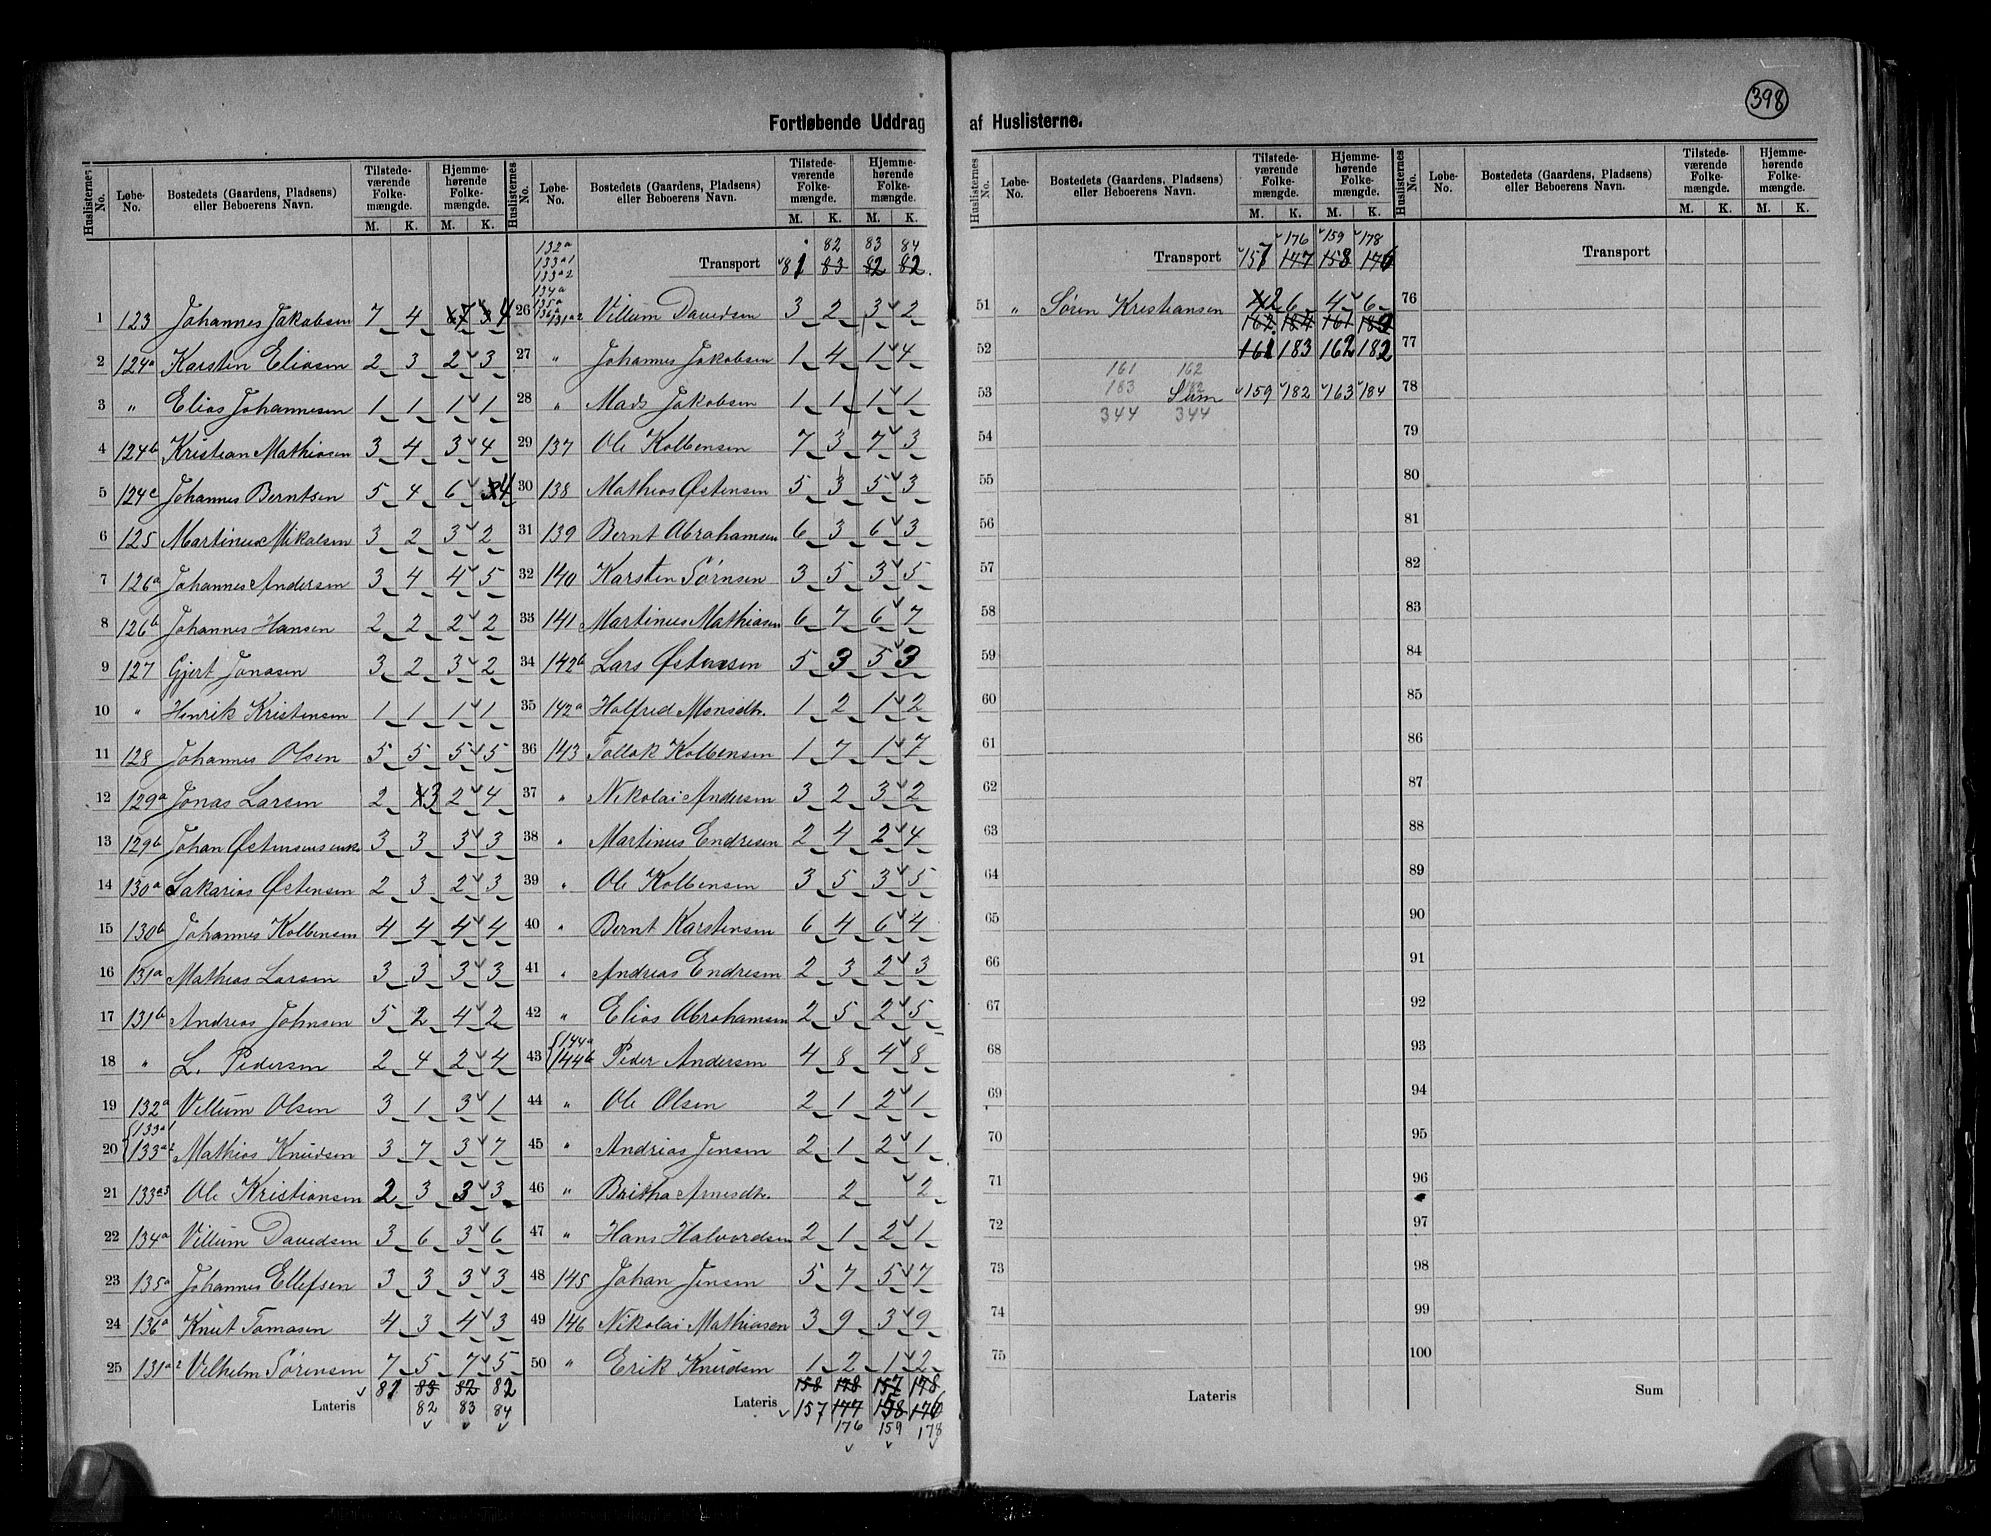 398
Fortløbende Uddrag af Huslisterne.
Huslisternes No. Løbe-No. Bostedets (Gaardens, Pladsens) eller Beboerens Navn. Tilstedeværende Folkemængde. M. K. Hjemmehørende Folkemængde. M. K.
1 123 Johannes Jakobsen 7 4 7 4
2 124a Karsten Eliasen 2 3 2 3
3 " Elias Johannesen 1 1 1 1
4 124b Kristian Mathiasen 3 4 3 4
5 124c Johannes Berntsen 5 4 6 4
6 125 Martinus Mikalsen 3 2 3 2
7 126a Johannes Andersen 3 4 4 5
8 126b Johannes Hansen 2 2 2 2
9 127 Gjert Jonasen 3 2 3 2
10 " Henrik Kristensen 1 1 1 1
11 128 Johannes Olsen 5 5 5 5
12 129a Jonas Larsen 2 3 2 4
13 129b Johan Østensens enke 3 3 3 3
14 130a Sakarias Østensen 2 3 2 3
15 130b Johannes Kolbensen 4 4 4 4
16 131a Mathias Larsen 3 3 3 3
17 131b Andreas Johnsen 5 2 4 2
18 " L. Pedersen 2 4 2 4
19 132a Villum Olsen 3 1 3 1
20 133a1 133a2 Mathias Knudsen 3 7 3 7
21 133a3 Ole Kristiansen 2 3 3 3
22 134a Villum Davidsen 3 6 3 6
23 135a Johannes Ellefsen 3 3 3 3
24 136a Knut Tomasen 4 3 4 3
25 131a2 Vilhelm Sørensen 7 5 7 5
Lateris 81 83 82 82
82 83 84
Huslisternes No. Løbe-No. Bostedets (Gaardens, Pladsens) eller Beboerens Navn. Tilstedeværende Folkemængde. M. K. Hjemmehørende Folkemængde. M. K.
82 83 84
Transport 81 83 82 82
132a
133a1
133a2
134a
135a
136a
26 131a2 Villum Davidsen 3 2 3 2
27 " Johannes Jakobsen 1 4 1 4
28 " Mads Jakobsen 1 1 1 1
29 137 Ole Kolbensen 7 3 7 3
30 138 Mathias Østensen 5 3 5 3
31 139 Bernt Abrahamsen 6 3 6 3
32 140 Karsten Sørnsen 3 5 3 5
33 141 Martinus Mathiasen 6 7 6 7
34 142b Lars Østensen 5 3 5 3
35 142a Halfred Monsdtr. 1 2 1 2
36 143 Tollak Kolbensen 1 7 1 7
37 " Nikolai Andersen 3 2 3 2
38 " Martinus Endresen 2 4 2 4
39 " Ole Kolbensen 3 5 3 5
40 " Bernt Karstensen 6 4 6 4
41 " Andreas Endresen 2 3 2 3
42 " Elias Abrahamsen 2 5 2 5
43 144a 144b Peder Andersen 4 8 4 8
44 " Ole Olsen 2 1 2 1
45 " Andreas Jensen 2 1 2 1
46 " Britha Arnesdtr. 2 2
47 " Hans Halvordsen 2 1 2 1
48 145 Johan Jensen 5 7 5 7
49 146 Nikolai Mathiasen 3 9 3 9
50 " Erik Knudsen 1 2 1 2
158 178 157 178
Lateris 157 177 158 176
176 159 178
Huslisternes No. Løbe-No. Bostedets (Gaardens, Pladsens) eller Beboerens Navn. Tilstedeværende Folkemængde. M. K. Hjemmehørende Folkemængde. M. K.
176 159 178
Transport 157 177 158 176
51 " Søren Kristiansen 2 6 4 6
162 184 161
52 161 183 162 182
161 162
53 183 182 Sum 159 182 163 184
344 344
54
55
56
57
58
59
60
61
62
63
64
65
66
67
68
69
70
71
72
73
74
75
Lateris
Huslisternes No. Løbe-No. Bostedets (Gaardens, Pladsens) eller Beboerens Navn. Tilstedeværende Folkemængde. M. K. Hjemmehørende Folkemængde. M. K.
Transport
76
77
78
79
80
81
82
83
84
85
86
87
88
89
90
91
92
93
94
95
96
97
98
99
100
Sum